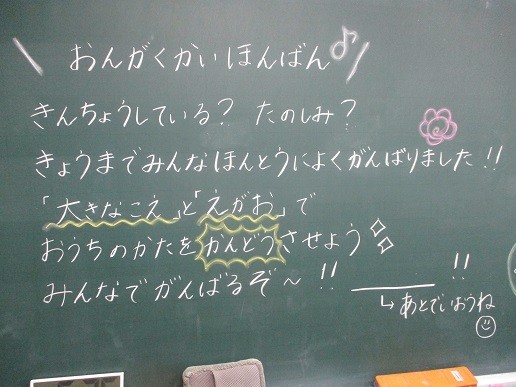 おんがくかいほんばん♪
きんちょうしている? たのしみ?
きょうまでみんなほんとうによくがんばりました!!
「大きなこえ」と「えがお」で
おうちのかたをかんどうさせよう
みんなでがんばるぞ〜!! ______!!
↳あとでいおうね